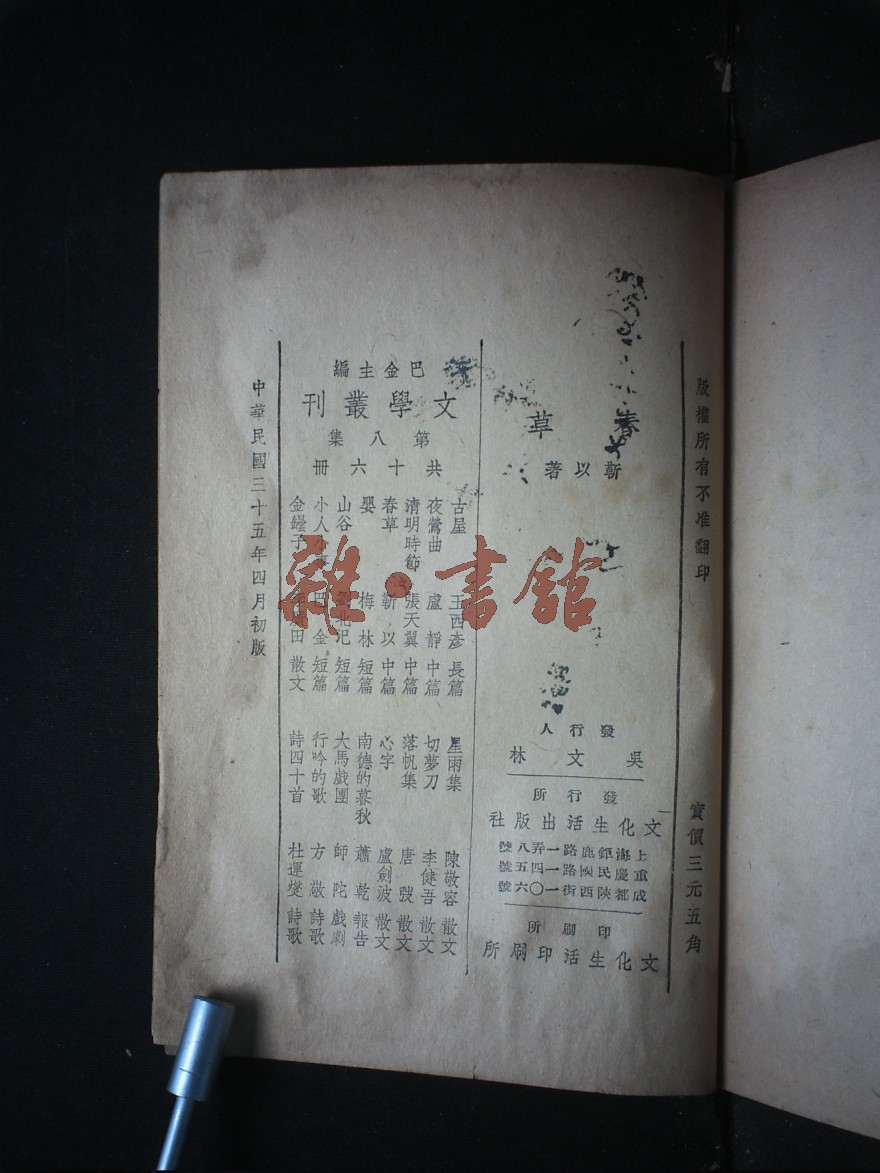 版權所有不准翻印
實價三元五角
春草
靳以著
發行人
吳文林
發行所
文化生活出版社
上海鉅鹿路一弄八號
重慶民國路一四五號
成都陝西街一〇六號
印刷所
文化生活印刷所
巴金主編
文學叢刊
第八集
共十六冊
古屋 王西彥 長篇
夜鶯曲 盧靜 中篇
清明時節 張天翼 中篇
春草 靳以 中篇
嬰 梅林 短篇
山谷 北汜 短篇
小人小事 巴金 短篇
金罎子 田 散文
星雨集 陳敬容 散文
切夢刀 李健吾 散文
落帆集 唐弢 散文
心字 盧劍波 散文
南德的暮秋 蕭乾 報告
大馬戲團 師陀 戲劇
行吟的歌 方敬 詩歌
詩四十首 杜運燮 詩歌
中華民國三十五年四月初版
雜·書館